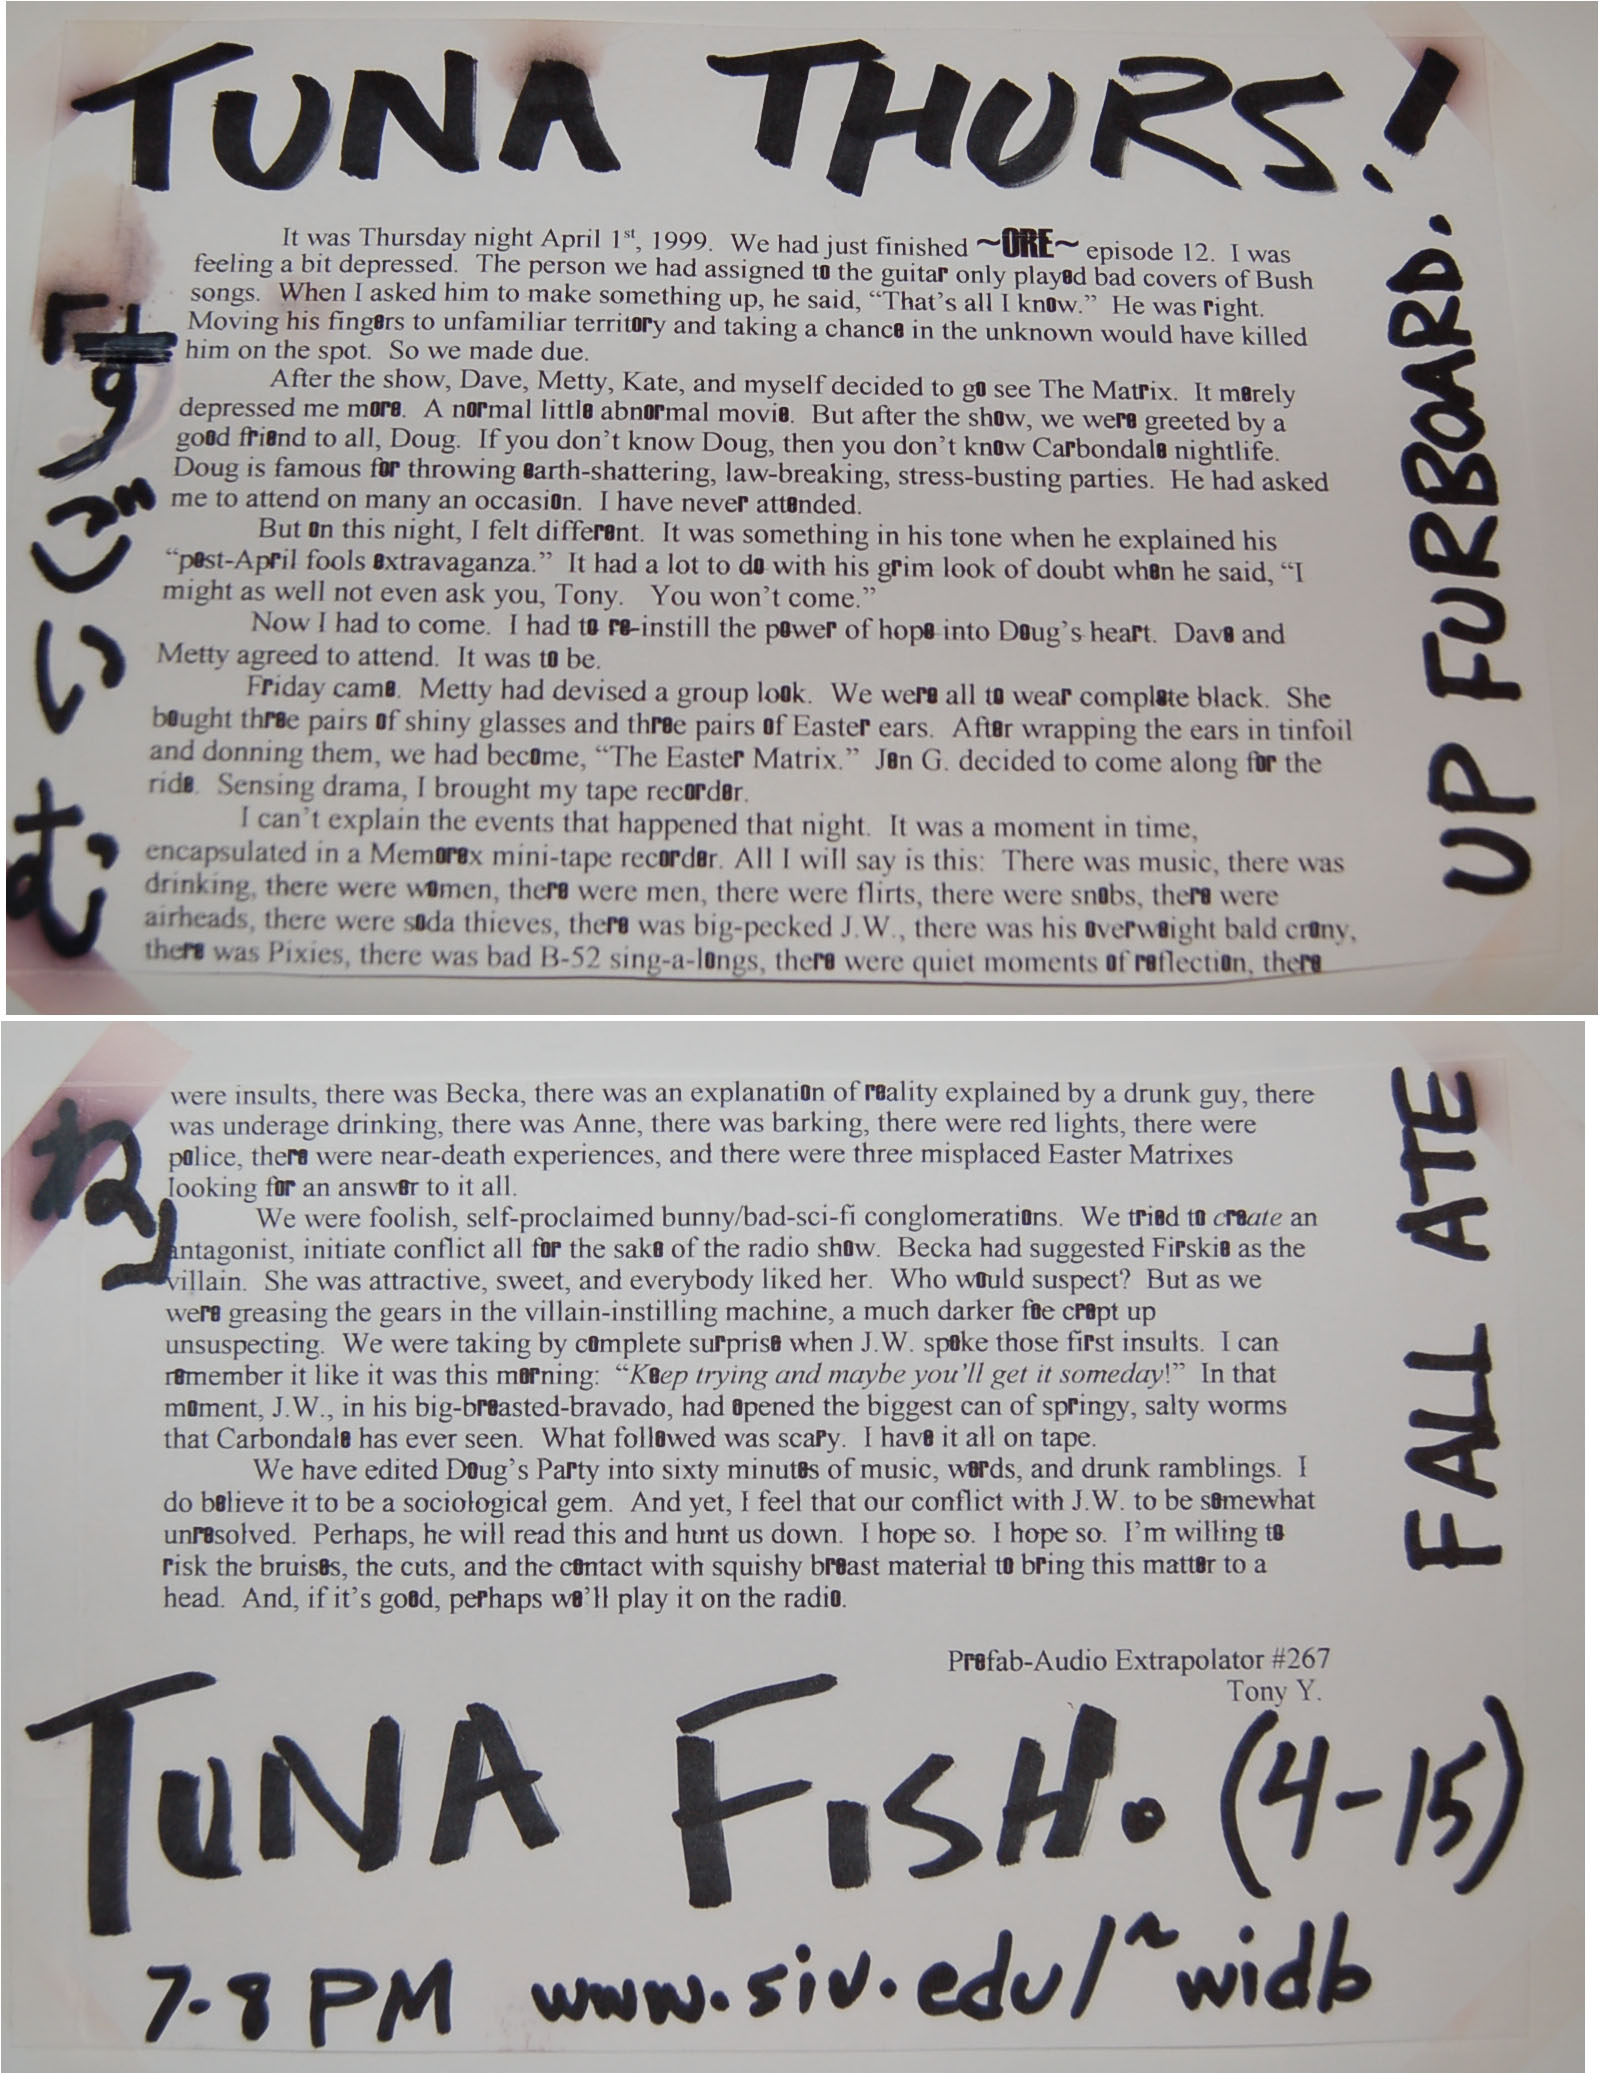 TUNA THURS!
It was Thursday night April 1st, 1999. We had just finished ~ORE~ episode 12. I was
feeling a bit depressed. The person we had assigned to the guitar only played bad covers of Bush
songs. When I asked him to make something up, he said, “That’s all I know.” He was right.
Moving his fingers to unfamiliar territory and taking a chance in the unknown would have killed
him on the spot. So we made due.
After the show, Dave, Metty, Kate, and myself decided to go see The Matrix. It merely
depressed me more. A normal little abnormal movie. But after the show, we were greeted by a
good friend to all, Doug. If you don’t know Doug, then you don’t know Carbondale nightlife.
Doug is famous for throwing earth-shattering, law-breaking, stress-busting parties. He had asked
me to attend on many an occasion. I have never attended.
But on this night, I felt different. It was something in his tone when he explained his
“post-April fools extravaganza.” It had a lot to do with his grim look of doubt when he said, “I
might as well not even ask you, Tony. You won’t come.”
Now I had to come. I had to re-instill the power of hope into Doug’s heart. Dave and
Metty agreed to attend. It was to be.
Friday came. Metty had devised a group look. We were all to wear complete black. She
bought three pairs of shiny glasses and three pairs of Easter ears. After wrapping the ears in tinfoil
and donning them, we had become, “The Easter Matrix.” Jen G. decided to come along for the
ride. Sensing drama, I brought my tape recorder.
I can’t explain the events that happened that night. It was a moment in time,
encapsulated in a Memorex mini-tape recorder. All I will say is this: There was music, there was
drinking, there were women, there were men, there were flirts, there were snobs, there were
airheads, there were soda thieves, there was big-pecked J.W., there was his overweight bald crony,
there was Pixies, there was bad B-52 sing-a-longs, there were quiet moments of reflection, there
「すごいむ
UP FURBOARD.
were insults, there was Becka, there was an explanation of reality explained by a drunk guy, there
was underage drinking, there was Anne, there was barking, there were red lights, there were
police, there were near-death experiences, and there were three misplaced Easter Matrixes
looking for an answer to it all.
We were foolish, self-proclaimed bunny/bad-sci-fi conglomerations. We tried to create an
antagonist, initiate conflict all for the sake of the radio show. Becka had suggested Firskie as the
villain. She was attractive, sweet, and everybody liked her. Who would suspect? But as we
were greasing the gears in the villain-instilling machine, a much darker foe crept up
unsuspecting. We were taking by complete surprise when J.W. spoke those first insults. I can
remember it like it was this morning: “Keep trying and maybe you’ll get it someday!” In that
moment, J.W., in his big-breasted-bravado, had opened the biggest can of springy, salty worms
that Carbondale has ever seen. What followed was scary. I have it all on tape.
We have edited Doug’s Party into sixty minutes of music, words, and drunk ramblings. I
do believe it to be a sociological gem. And yet, I feel that our conflict with J.W. to be somewhat
unresolved. Perhaps, he will read this and hunt us down. I hope so. I hope so. I’m willing to
risk the bruises, the cuts, and the contact with squishy breast material to bring this matter to a
head. And, if it’s good, perhaps we’ll play it on the radio.
Prefab-Audio Extrapolator #267
Tony Y.
ね」
FALL ATE
TUNA FISH. (4-15)
7-8 PM www.siu.edu/~widb